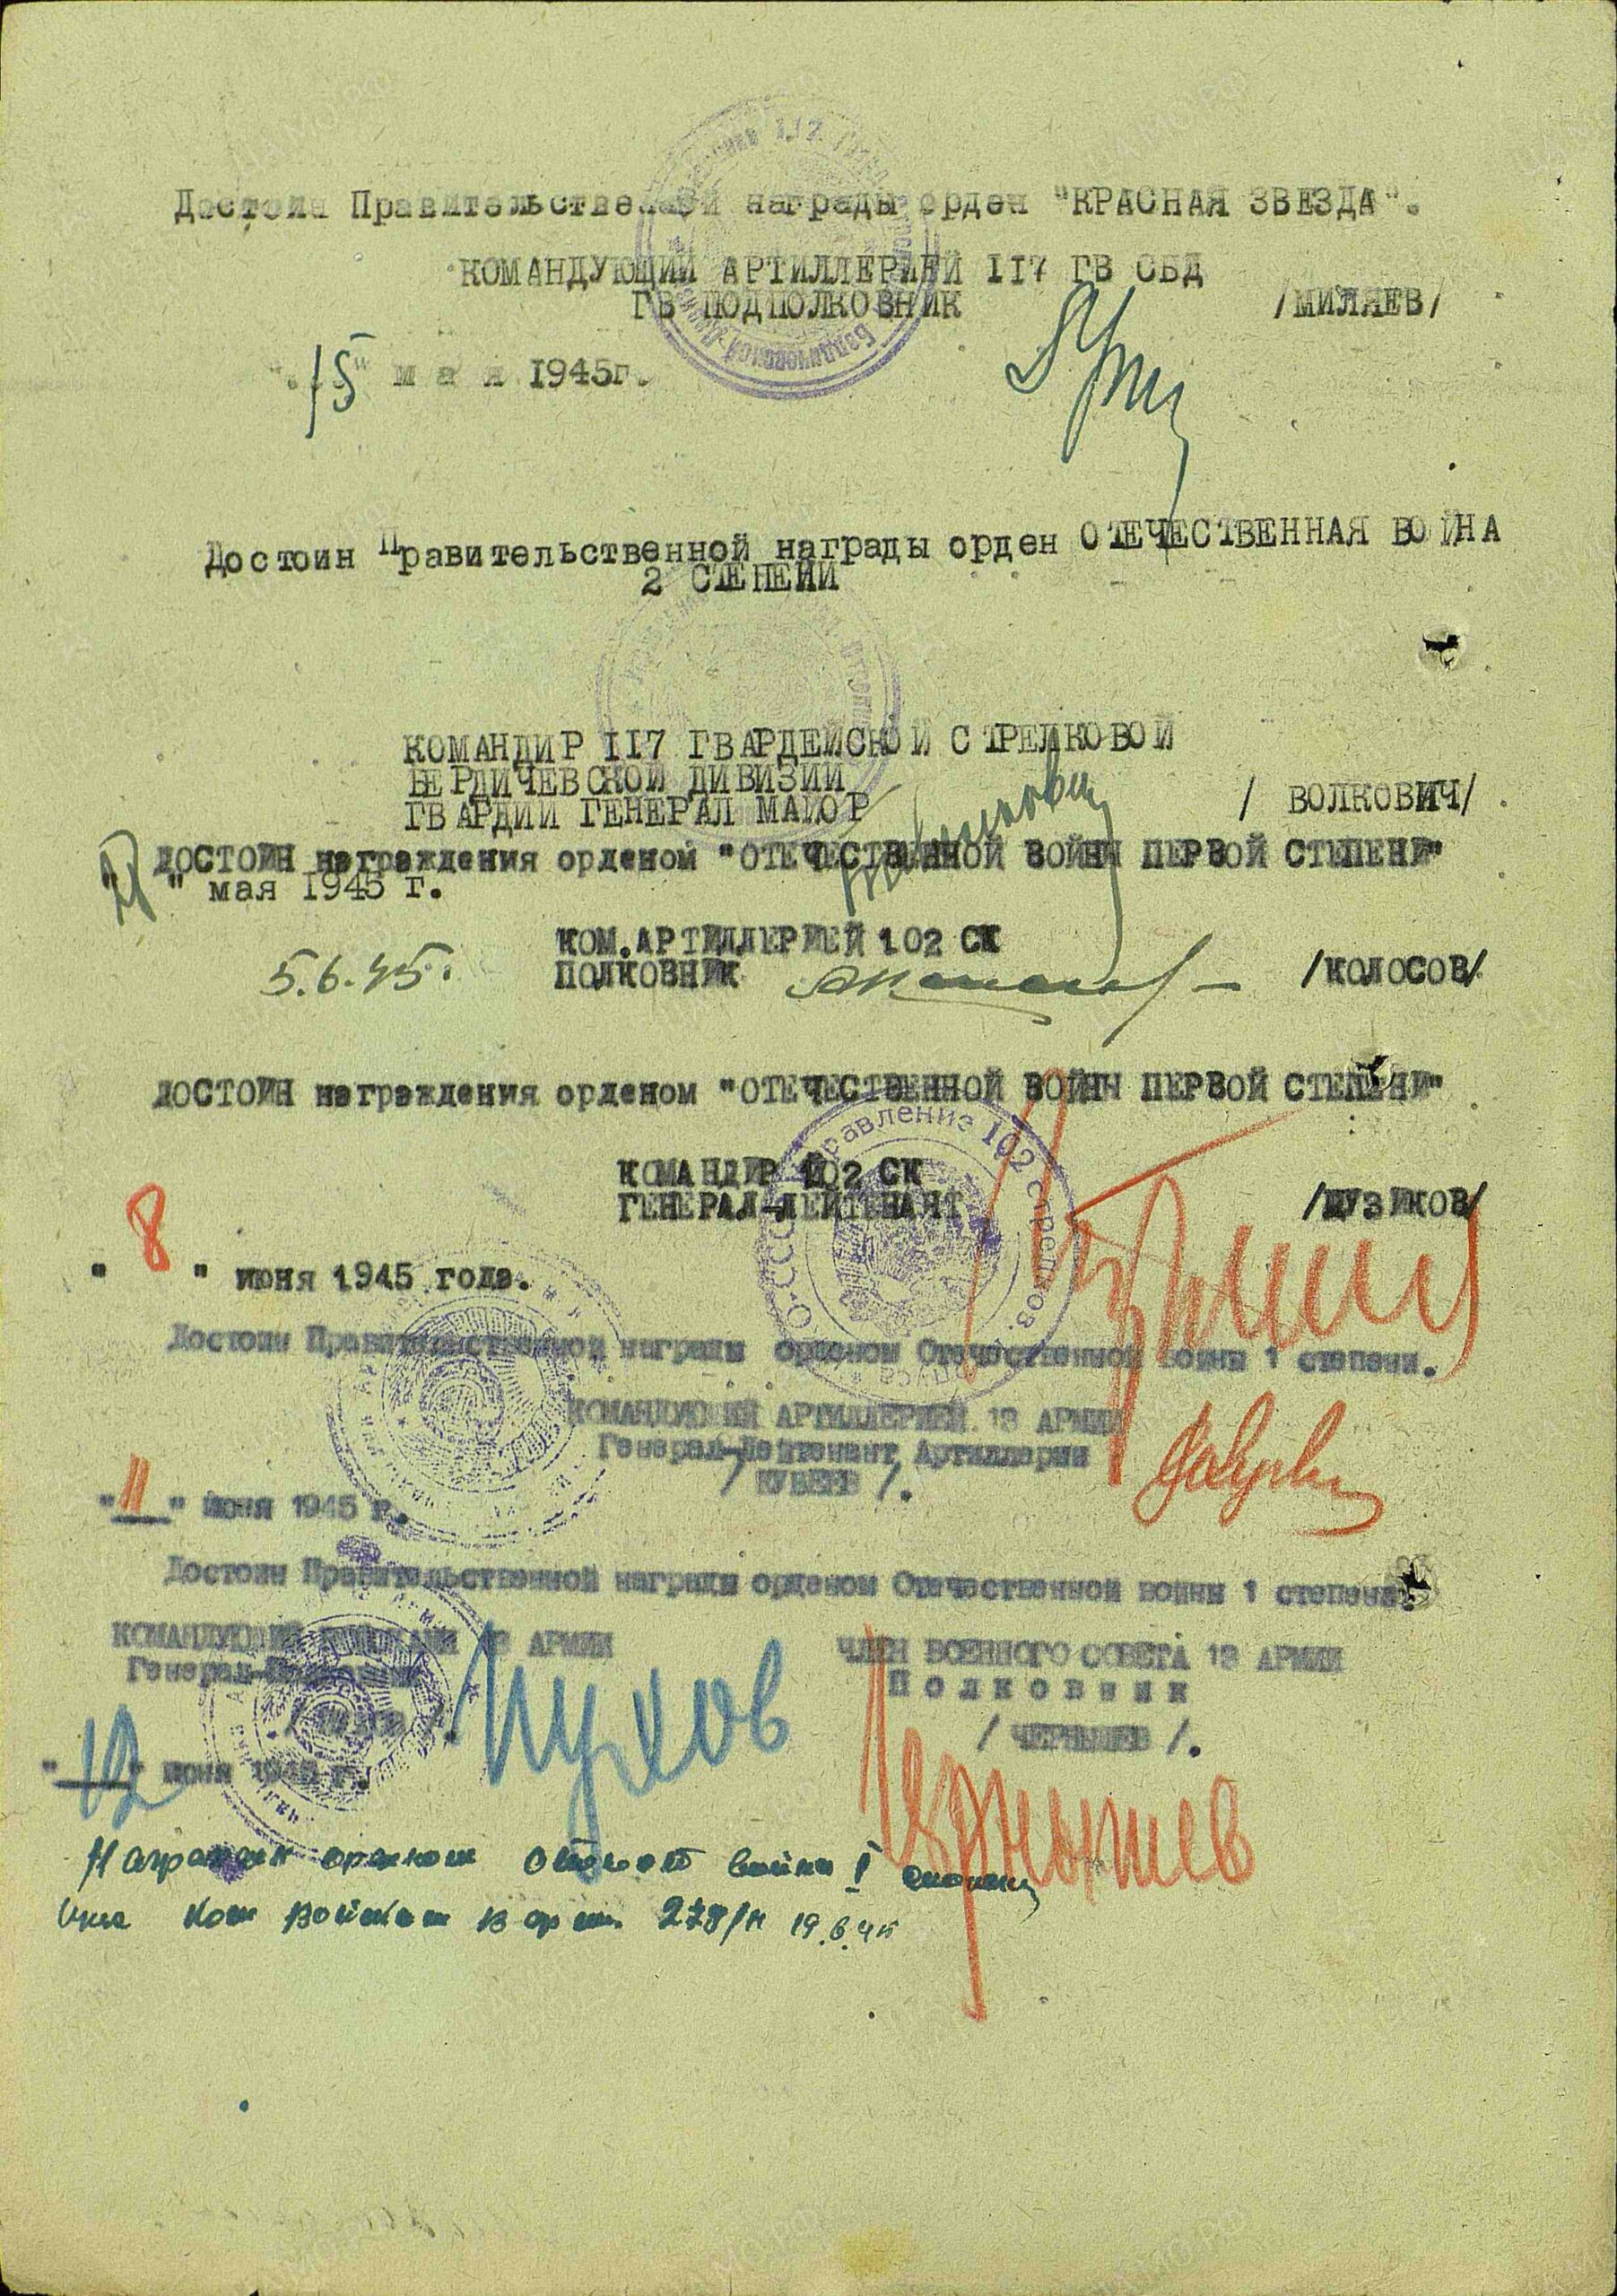 Достоин Правительственной награды орден "КРАСНАЯ ЗВЕЗДА".
КОМАНДУЮЩИЙ АРТИЛЛЕРИЕЙ 117 ГВ СБД
ГВ ПОДПОЛКОВНИК /МИЛЯЕВ/
"15" мая 1945г.
Достоин Правительственной награды орден ОТЕЧЕСТВЕННАЯ ВОЙНА
2 СТЕПЕНИ
КОМАНДИР 117 ГВАРДЕЙСКОЙ СТРЕЛКОВОЙ
БЕРДИЧЕВСКОЙ ДИВИЗИИ
ГВАРДИИ ГЕНЕРАЛ МАЙОР / ВОЛКОВИЧ/
ДОСТОИН награждения орденом "ОТЕЧЕСТВЕННОЙ ВОЙНЫ ПЕРВОЙ СТЕПЕНИ"
" мая 1945 г.
КОМ.АРТИЛЛЕРИЕЙ 102 СК
5.6.45. ПОЛКОВНИК /КОЛОСОВ/
ДОСТОИН награждения орденом "ОТЕЧЕСТВЕННОЙ ВОЙНЫ ПЕРВОЙ СТЕПЕНИ"
Управление 102 стрелков. корпуса
КОМАНДИР 102 СК
ГЕНЕРАЛ-ЛЕЙТЕНАНТ /ПУЗИКОВ/
" 8 " июня 1945 года.
Достоин Правительственной награды орденом Отечественной войны 1 степени.
КОМАНДУЮЩИЙ АРТИЛЛЕРИЕЙ 13 АРМИИ
Генерал-Лейтенант Артиллерии
/ КУБЕЕВ /.
"11" июня 1945 г.
Достоин Правительственной награды орденом Отечественной войны 1 степени.
КОМАНДУЮЩИЙ ВОЙСКАМИ 13 АРМИИ ЧЛЕН ВОЕННОГО СОВЕТА 13 АРМИИ
Генерал-Полковник Полковник
Пухов / ЧЕРНЫШЕВ /.
"12" июня 1945 г. Чернышев
Награжден орденом Отечест войны I степени
Пр. Ком войскам 13 арм. 278/н 19.6.45